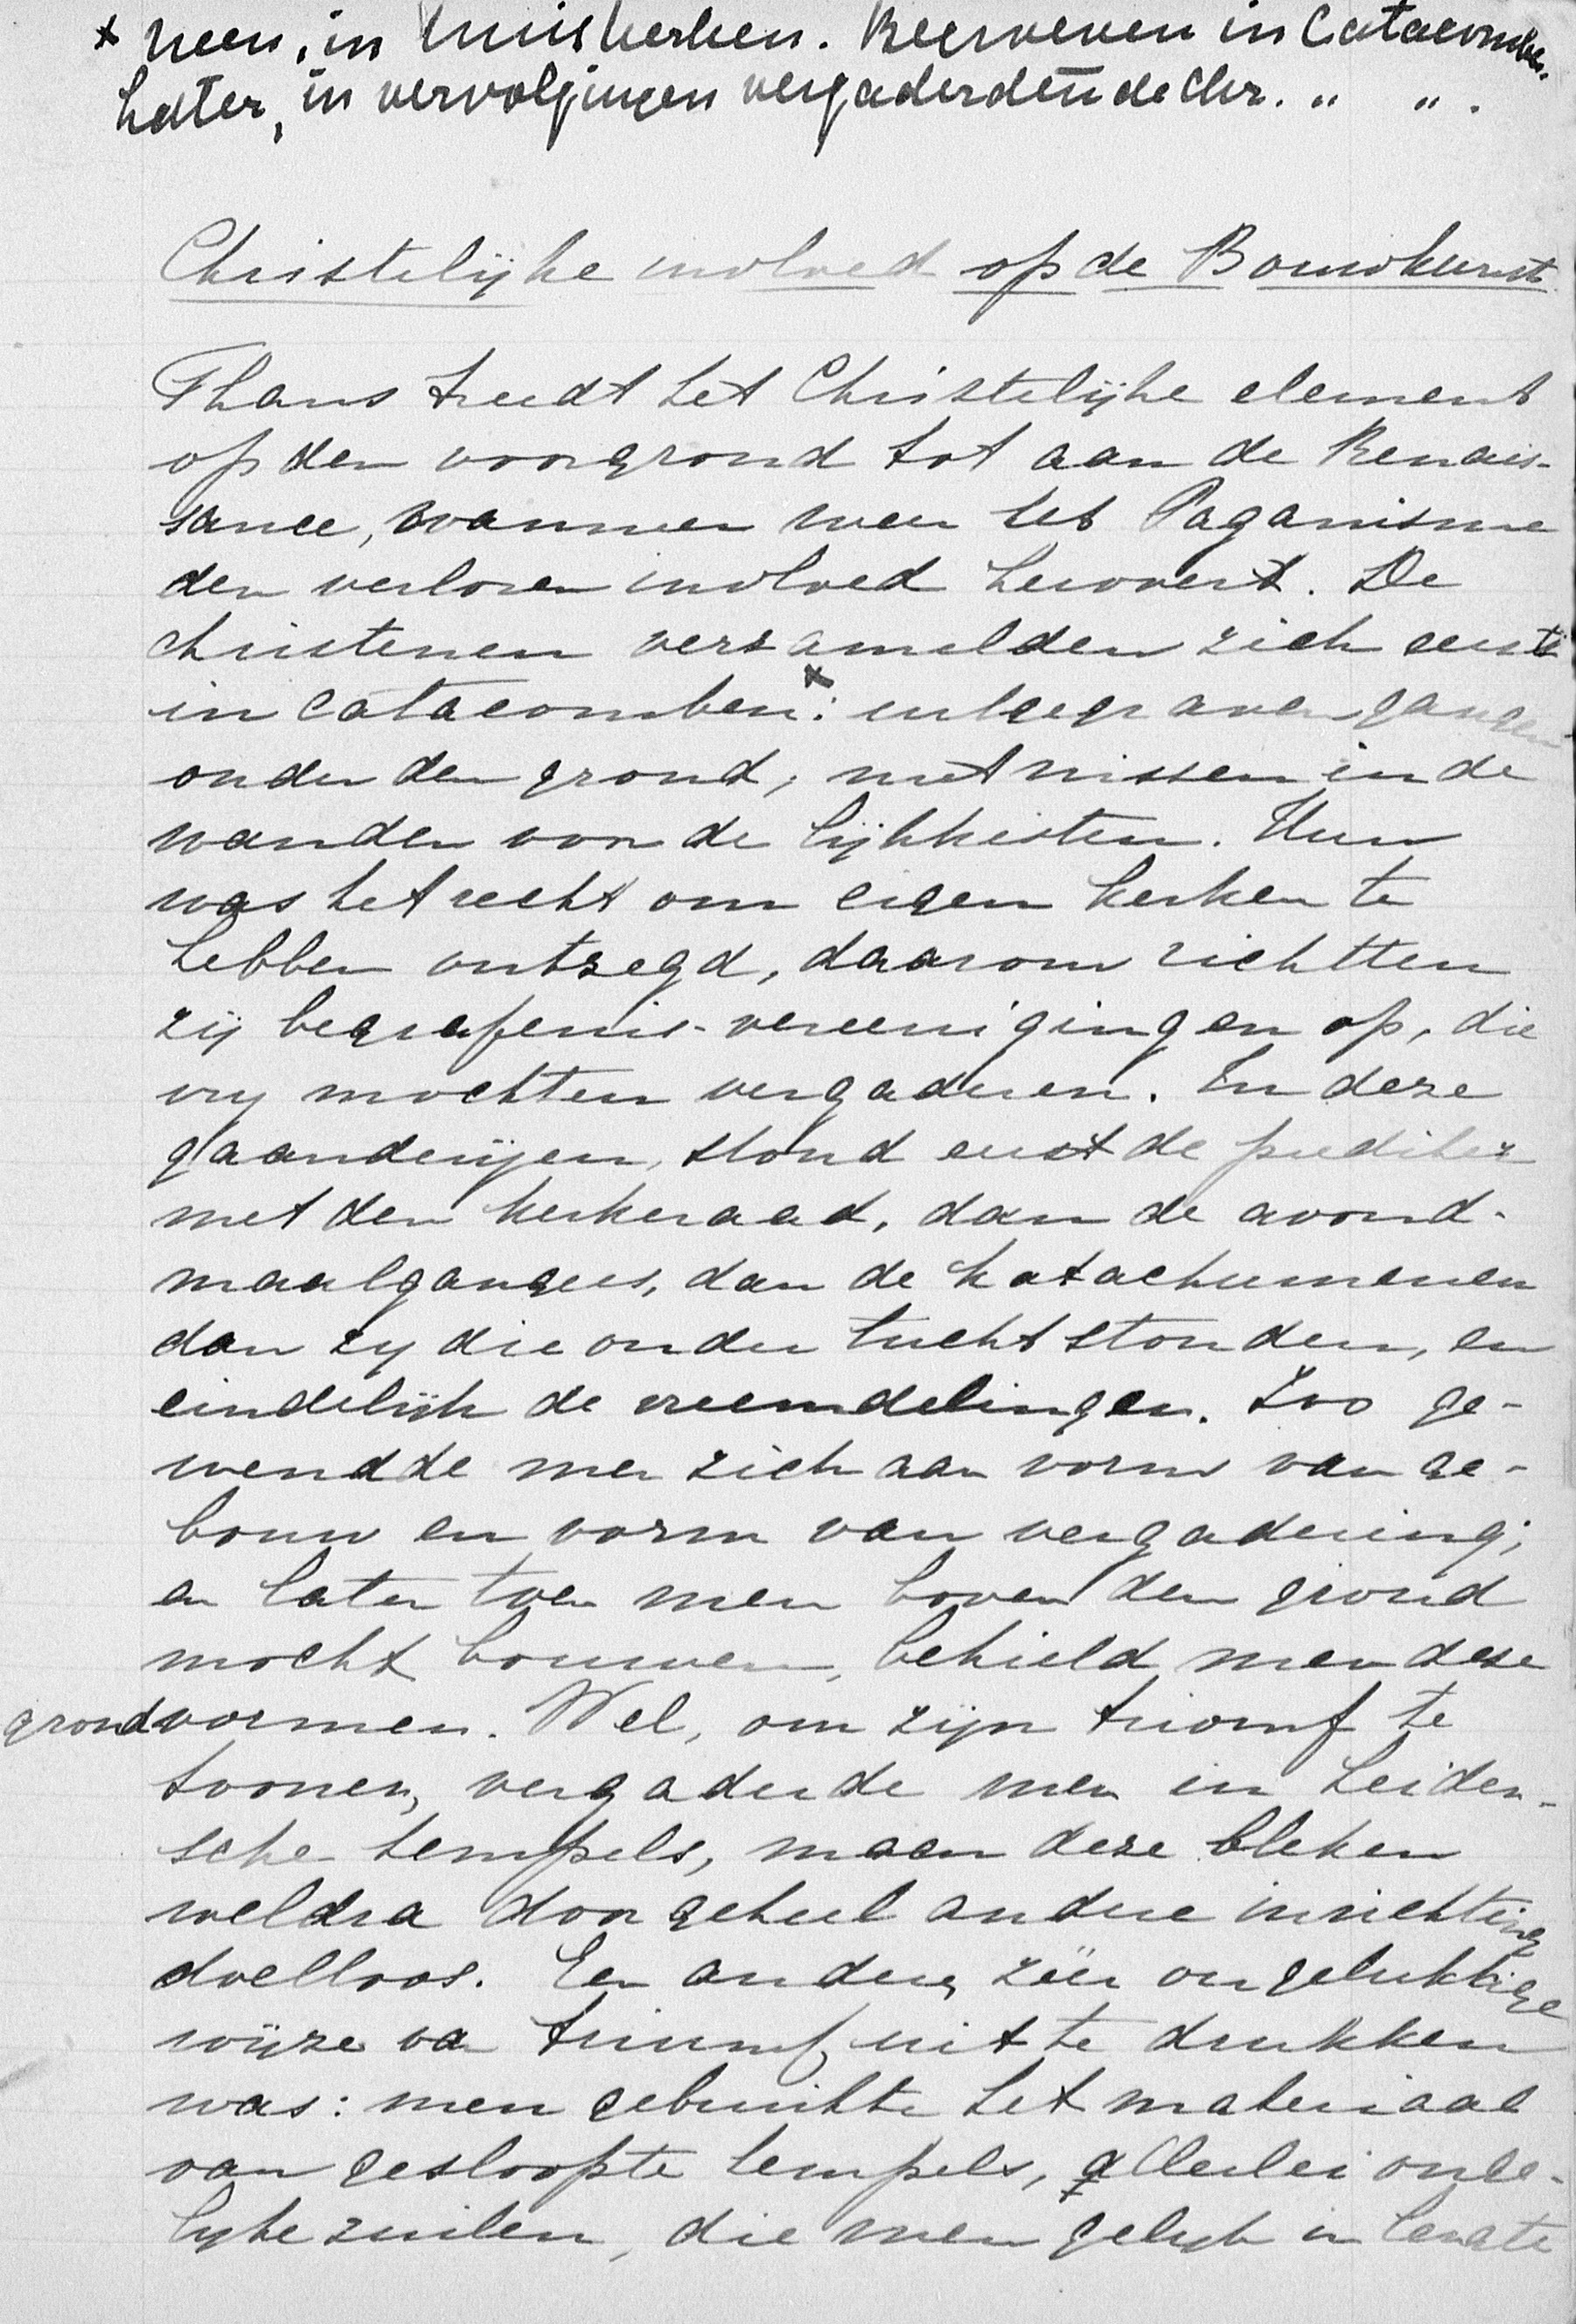 x Neen, in huiskerken. Begraven in Catacomben.
Later, in vervolgingen vergaderden de Chr. " ".
Christelijke invloed op de Bouwkunst.
Thans treedt het Christelijke element
op den voorgrond tot aan de Renais-
sance, wanneer weer het Paganisme
den verloren invloed herovert. De
christenen verzamelden zich eerst
in catacomben x: uitgegraven gangen
onder den grond, met nissen in de
wanden voor de lijkkisten. Hun
was het recht om eigen kerken te
hebben ontzegd, daarom richtten
zij begrafenis-vereenigingen op, die
vrij mochten vergaderen. In deze
gaanderijen, stond eerst de prediker
met den kerkeraad, dan de avond-
maalgangers, dan de katachumenen
dan zy die onder tucht stonden, en
eindelijk de vreemdelingen. Zoo ge-
wendde men zich aan vorm van ge-
bouw en vorm van vergadering;
en later toen men boven den grond
mocht bouwen, behield men deze
grondvormen. Wel, om zijn triomf te
toonen, vergaderde men in heiden-
sche tempels, maar deze bleken
weldra door geheel andere inrichting
doelloos. Een andere, zéér ongelukkige
wijze van triumf uit te drukken
was: men gebruikte het materiaal
van gesloopte tempels, allerlei onge-
lyke zuilen, die men gelijk in lengte